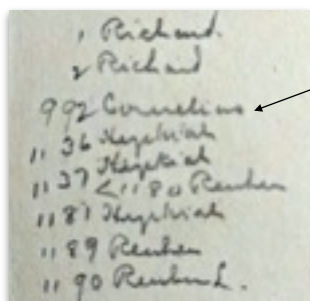 1 Richard.
2 Richard
992 Cornelius
1136 Hezekiah
1137 Hezekiah
< 1180 Reuben
1181 Hezekiah
1189 Reuben
1190 Reuben L.